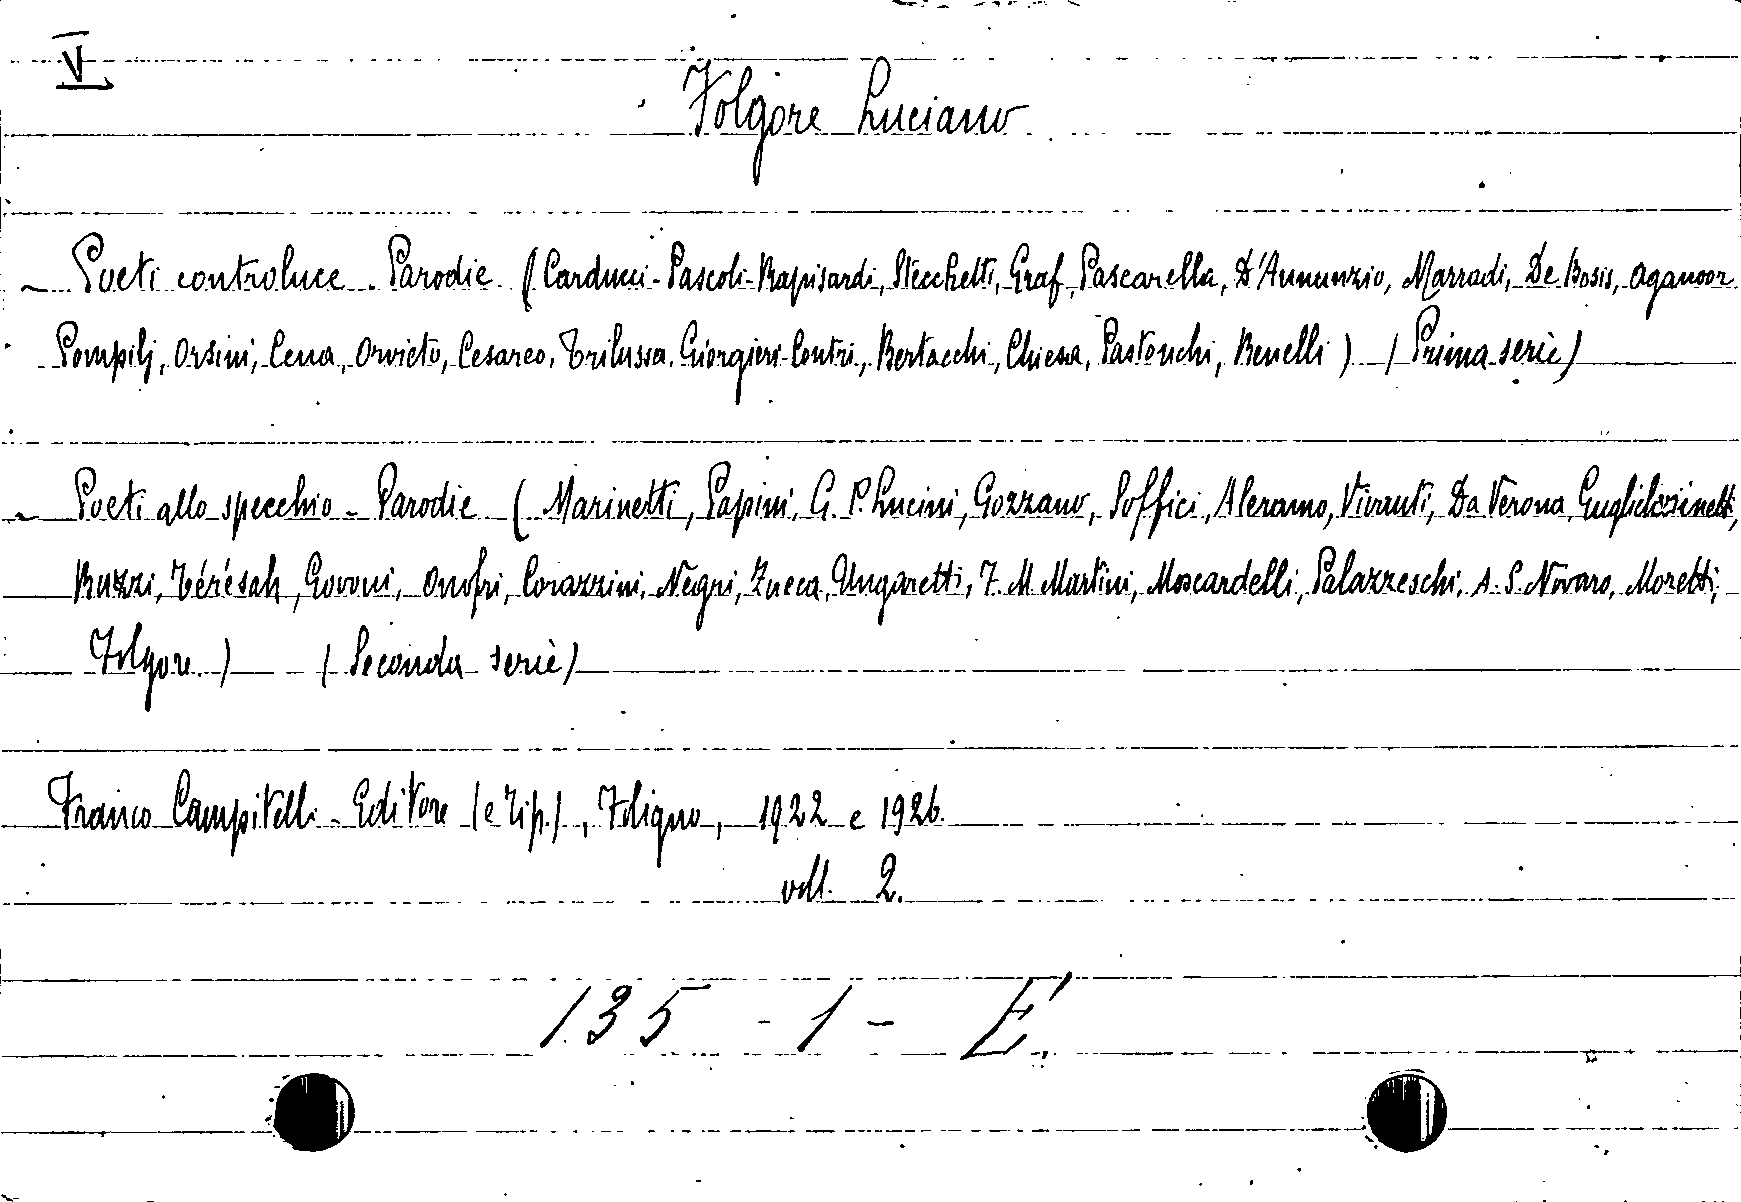 V
Folgore Luciano
~ Poeti controluce. Parodie. (Carducci-Pascoli-Rapisardi, Stecchetti, Graf, Pascarella, D'Annunzio, Marradi, De Bosis, Aganoor
Pompilj, Orsini, Cena, Orvieto, Cesareo, Trilussa, Giorgieri-Contri, Bertacchi, Chiesa, Pastonchi, Benelli) (Prima serie)
~ Poeti allo specchio - Parodie (Marinetti, Papini, G. P. Lucini, Gozzano, Soffici, Aleramo, Vivanti, Da Verona,
Buzzi, Térésah, Govoni, Onofri, Corazzini, Negri, Zucca, Ungaretti, F. M. Martini, Moscardelli, Palazzeschi, A. S. Novaro, Moretti,
Folgore.) (Seconda serie)
Franco Campitelli - Editore (e Tip.), Foligno, 1922 e 1926.
voll. 2.
135 - 1 - E.